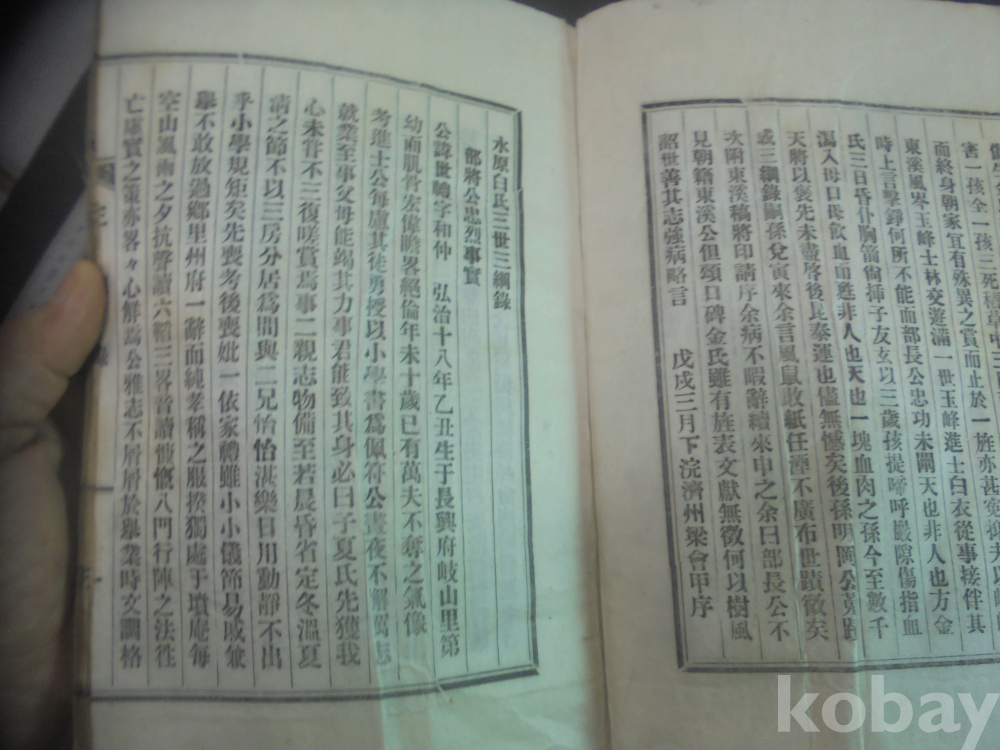 害一孩全一孩三死
而終身朝家宜有殊異之賞而止於一旌亦甚寃
東溪風岑玉峰士林交遊滿一世玉峰進士白衣從事接伴其
時上言擊錚何所不能而部長公忠功未闡天也非人也方金
氏三日昏仆胸箭尙揷子友玄以三歲孩提啼呼巖隙傷指血
瀉入母口母飮血而甦非人也天也一塊血肉之孫今至數千
天將以裒先未盡啓後昆泰運也儘無憾矣後孫明岡公
或三綱錄嗣孫兌寅來余言風鼠敗紙任湮不廣布世蹟徵矣
次附東溪稿將印請序余病不暇辭續來申之余曰部長公不
見朝籍東溪公但頌口碑金氏雖有旌表文獻無徵何以樹風
詔世善其志強病略言
戊戌三月下浣濟州梁會甲序
水原白氏三世三綱錄
部將公忠烈事實
公諱世 字和仲 弘治十八年乙丑生于長興府岐山里第
幼而肌骨宏偉瞻畧絕倫年未十歲已有萬夫不奪之氣像
考進士公每慮其徒勇授以小學書爲佩符公晝夜不解篤志
就業至事父母能竭其力事君能致其身必曰子夏氏先獲我
心未嘗不三復嗟賞焉事二親志物備至若晨昏省定冬溫夏
凊之節不以三房分居爲間與二兄怡怡湛樂日用動靜不出
乎小學規矩矣先喪考後喪妣一依家禮雖小小儀節易戚兼
擧不敢放過鄕里州府一辭而純孝稱之服揆獨處于墳庵每
空山風雨之夕抗聲讀六韜三畧音讀慷慨八門行陣之法徃
亡虛實之策亦畧々心解焉公雅志不屑屑於擧業時文調格